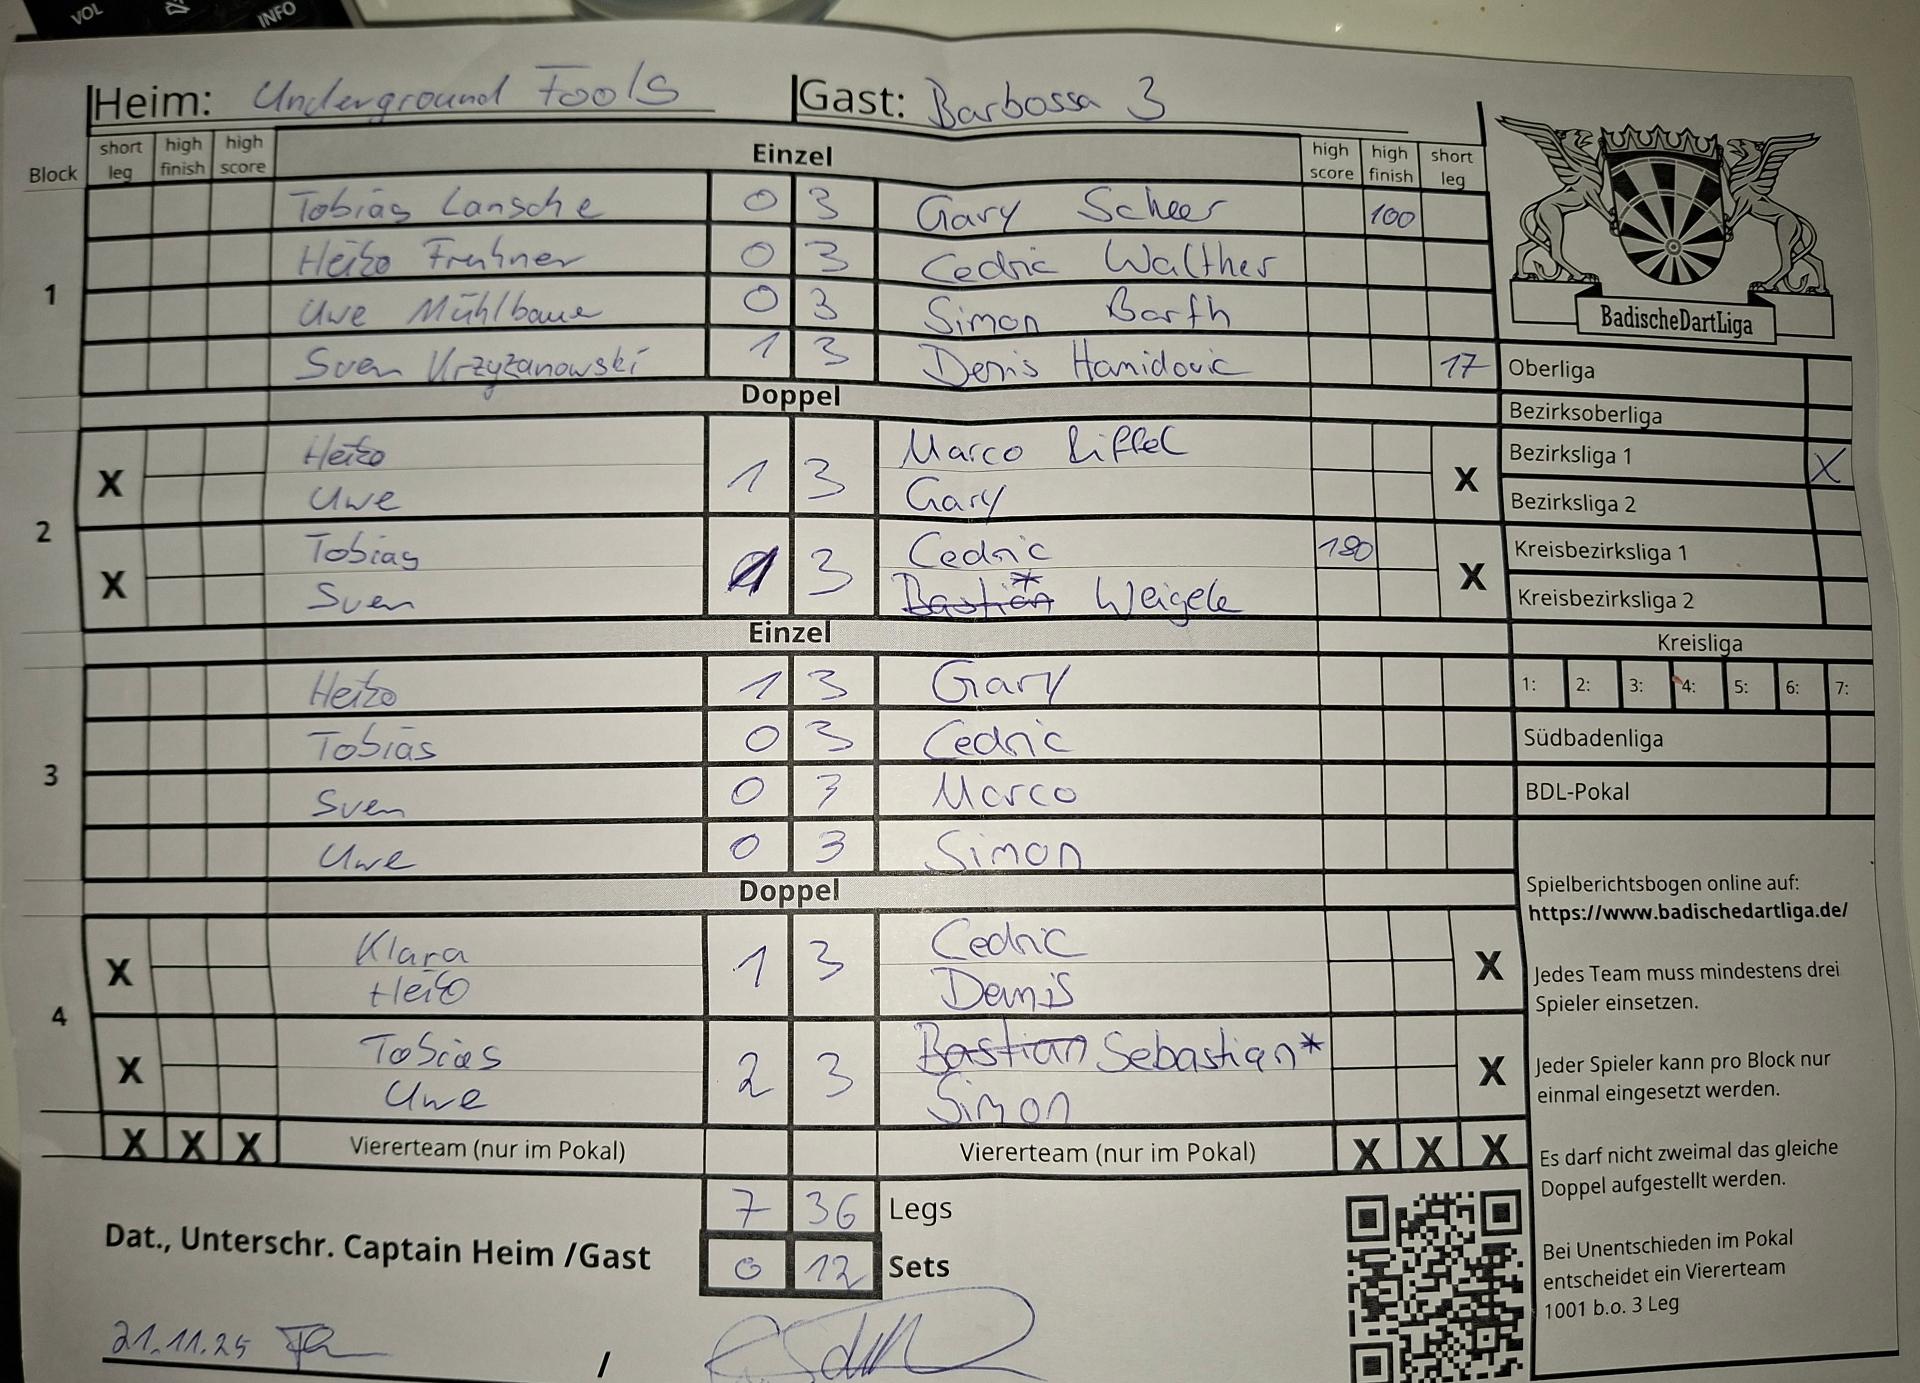 VOL INFO
Heim: Underground Fools Gast: Barbossa 3
Block short leg high finish high score Einzel high score high finish short leg
Tobias Lansche 0 3 Gary Scheer 100
Heiko Fruhner 0 3 Cedric Walther
1
Uwe Mühlbauer 0 3 Simon Barth
Sven Krzyzanowski 1 3 Denis Hamidovic 17
Doppel
X Heiko 1 3 Marco Riffel X
Uwe Gary
2
X Tobias 3 Cedric 180 X
Sven Bastian* Weigele
Einzel
Heiko 1 3 Gary
Tobias 0 3 Cedric
3
Sven 0 3 Marco
Uwe 0 3 Simon
Doppel
X Klara 1 3 Cedric X
Heiko Denis
4
X Tobias 2 3 Bastian Sebastian* X
Uwe Simon
X X X Viererteam (nur im Pokal) Viererteam (nur im Pokal) X X X
7 36 Legs
0 12 Sets
Dat., Unterschr. Captain Heim /Gast
21.11.25 /
BadischeDartLiga
Oberliga
Bezirksoberliga
Bezirksliga 1 X
Bezirksliga 2
Kreisbezirksliga 1
Kreisbezirksliga 2
Kreisliga
1: 2: 3: 4: 5: 6: 7:
Südbadenliga
BDL-Pokal
Spielberichtsbogen online auf:
https://www.badischedartliga.de/
Jedes Team muss mindestens drei
Spieler einsetzen.
Jeder Spieler kann pro Block nur
einmal eingesetzt werden.
Es darf nicht zweimal das gleiche
Doppel aufgestellt werden.
Bei Unentschieden im Pokal
entscheidet ein Viererteam
1001 b.o. 3 Leg